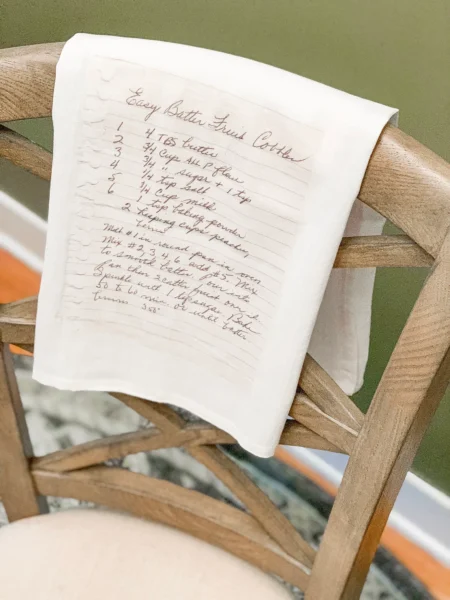 Easy Batter Fruit Cobbler
1 4 TBS butter
2 3/4 Cup All P flour
3 3/4 " sugar + 1 tsp
4 1/4 tsp salt
5 3/4 Cup milk
6 1 tsp baking powder
2 heaping cups peaches,
Melt #1 in round pan in oven
Mix #2, 3, 4, 6 add #5. Mix
to smooth batter pour into
pan then scatter fruit over &
sprinkle with 1 tsp sugar Bake
50 to 60 min. or until batter
brown 350°